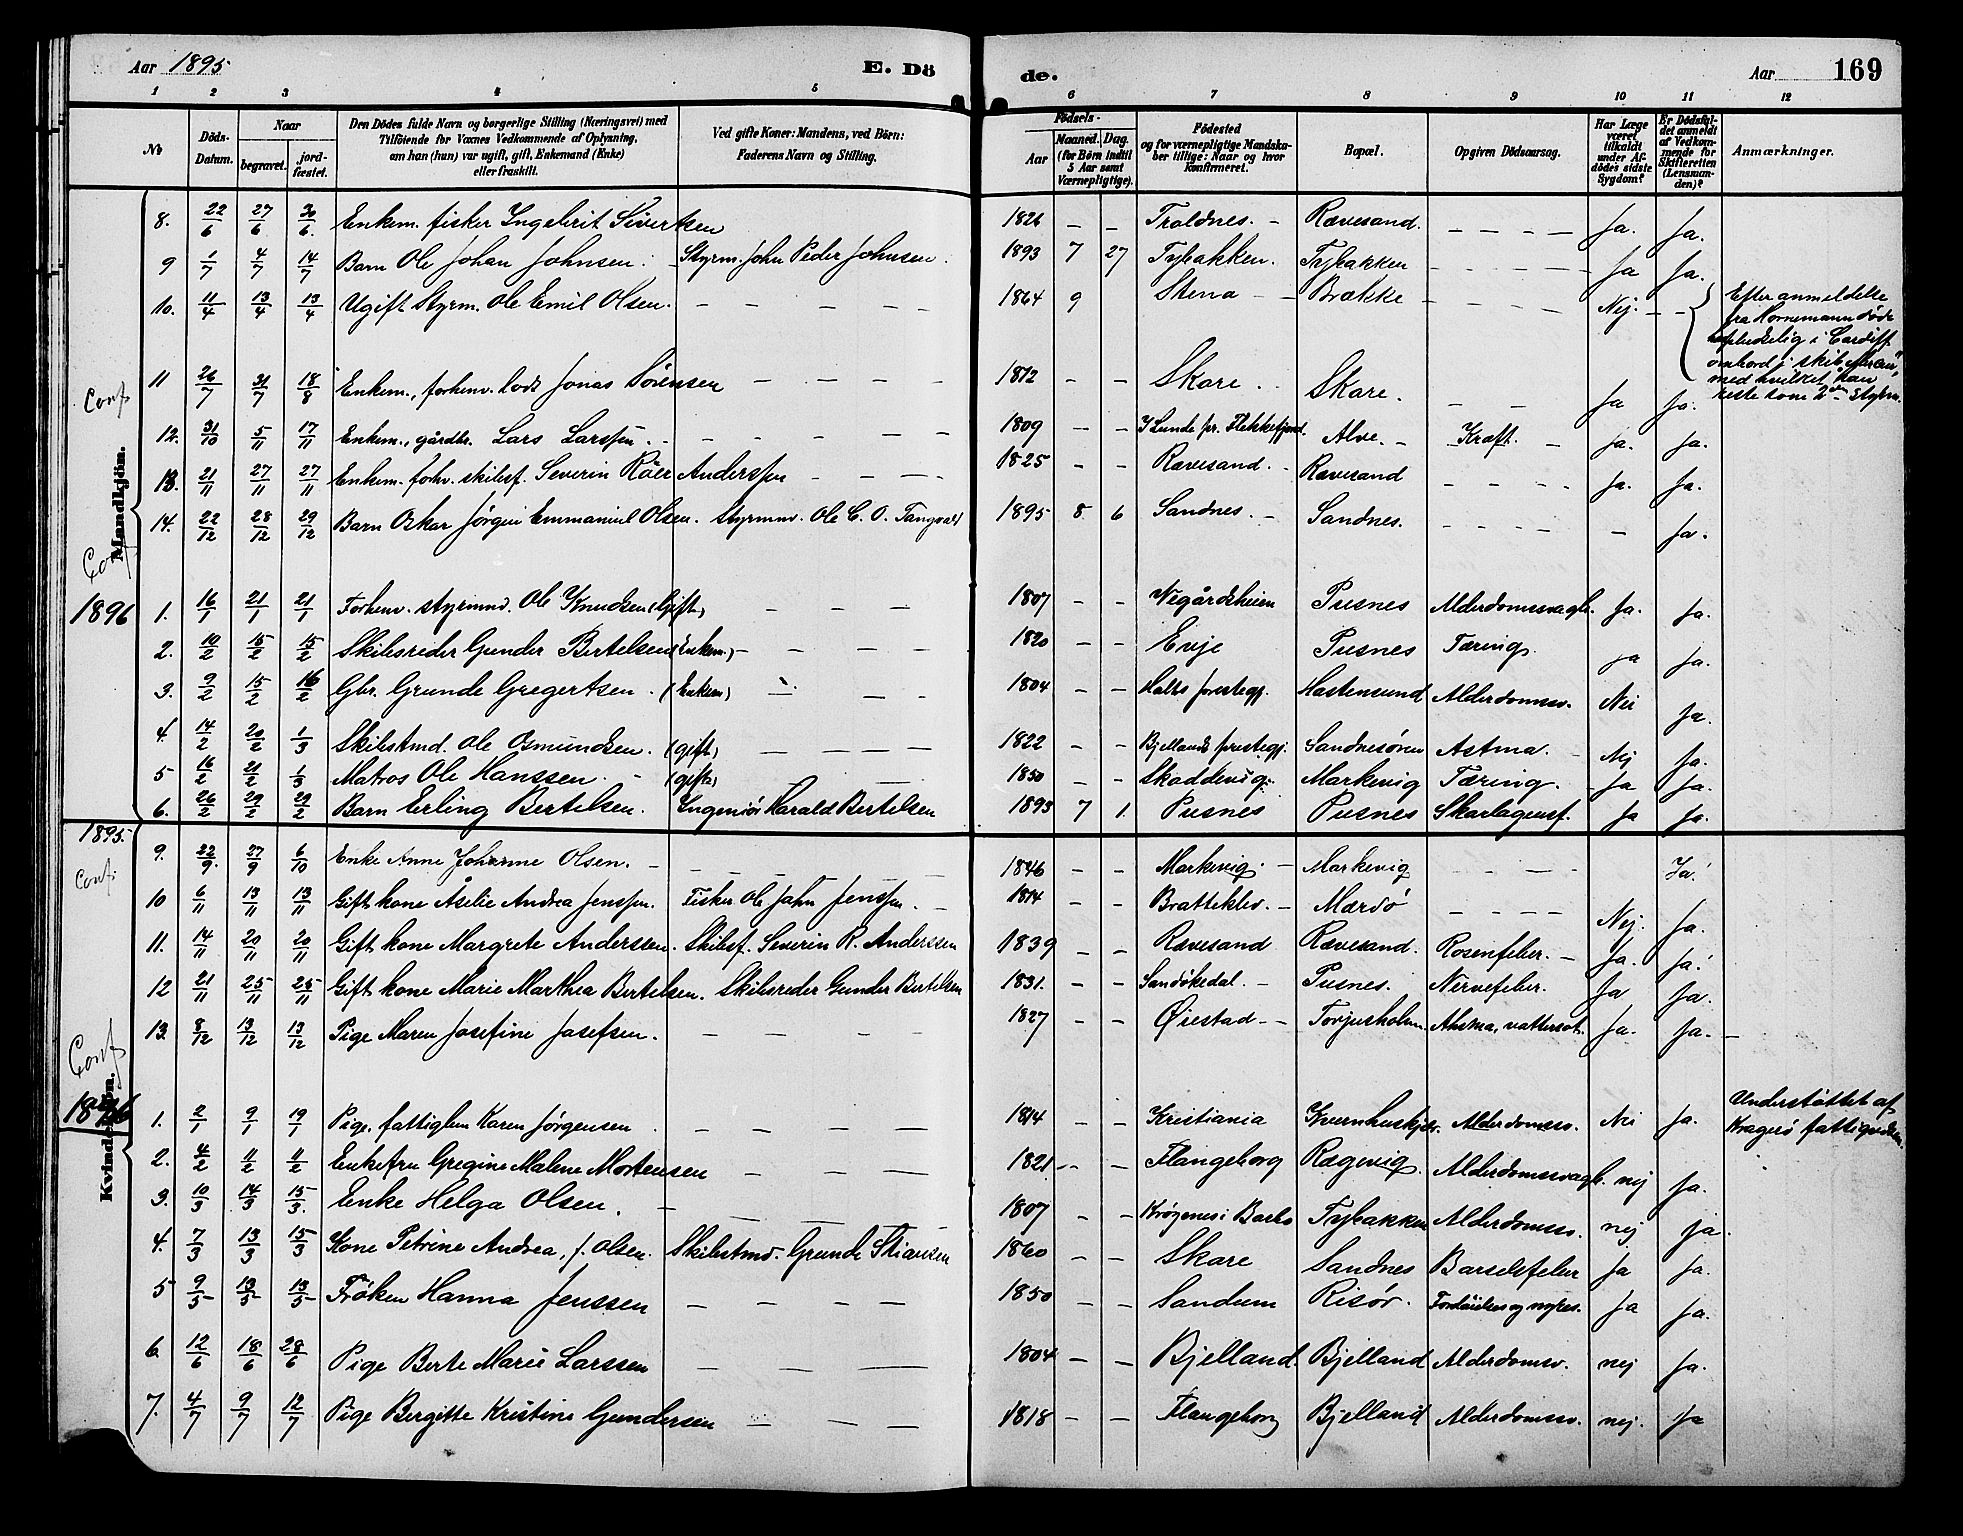 Aar 1895 E. Dö de. Aar 169
1 2 3 4 5 6 7 8 9 10 11 12
No Döds-Datum. Naar begravet. jordfæstet. Den Dödes fulde Navn og borgerlige Stilling (Næringsvei) med Tilföiende for Voxnes Vedkommende af Oplysning, om han (hun) var ugift, gift, Enkemand (Enke) eller fraskilt. Ved gifte Koner: Mandens, ved Börn: Faderens Navn og Stilling. Födsels- Aar Maaned. Dag. (for Börn indtil 5 Aar samt Værnepligtige). Födested og for værnepligtige Mandskaber tillige: Naar og hvor Konfirmeret. Bopæl. Opgiven Dödsaarsag. Har Læge været tilkaldt under Afdödes sidste Sygdom? Er Dödsfaldet anmeldt af Vedkommende for Skifteretten (Lensmanden)? Anmærkninger.
Mandkjön.
8. 22/6 27/6 30/6. Enkem. fisker Ingebrit Sivertsen 1826 – – Traldnes. – Rævesand. – – – – Ja. Ja.
9 1/7 4/7 14/7 Barn Ole Johan Johnsen. – Styrm. John Peder Johnsen. 1893 7 27 Tybakken. Tybakken – – – – – Ja Ja.
10. 11/4 13/4 13/4 Ugift Styrm. Ole Emil Olsen. – – – – 1864 9 Stena – – Brække – – – – Nej. – –
Efter anmeldelse
fra Hornemann døde
i Cardiff
ombord i skib
med hvilket han
reste som 2den Styrm.
Conf
11 26/7 31/7 18/8 Enkem., forhenv. lods Jonas Sörensen – – – – 1812 – – Skare. . Skare. – – Ja Ja.
12. 31/10 5/11 17/11 Enkem., gårdbr. Lars Larssen. – – – – – 1809 – – I Lunde pr. Flekkefjord. Alve. – Kræft. – Ja. Ja.
13. 21/11 27/11 27/11 Enkem. forhv. skibsf. Severin Röer Anderssen – – – – 1825 – – Rævesand. – Rævesand – – – – Ja. Ja.
14. 22/12 28/12 29/12 Barn Oskar Jörgen Emmanuel Olsen. Styrmnd. Ole C. O. Tangvald 1895 8 6 Sandnes. – Sandnes. – – – – – Ja.
Conf
1896 1. 16/1 21/1 21/1 Forhenv. styrmnd. Ole Knudsen (Gift) – – – 1807 – – Vegårdsheien Pusnes Alderdomssvagh. Ja. Ja.
2. 10/2 15/2 15/2 Skibsreder Gunder Bertelsen (Enkem.) – – – – 1820 – – Evje Pusnes Tæring. ja Ja.
3. 9/2 15/2 16/2 Gbr. Grunde Gregertsen. (Enkem) – – – 1804 – – Holts prestegj. Hastensund Alderdomssv. Nei Ja.
4. 14/2 20/2 1/3 Skibstmd. Ole Osmundsen. (gift) – – – – 1822 – – Bjellands prestegj. Sandnesören Astma. – Nej Ja.
5 16/2 21/2 1/3 Matros Ole Hanssen. – (gift) – – – 1850 – – Skaddevig. Markevig Tæring. – Ja Ja.
6. 26/2 29/2 29/2 Barn Erling Bertelsen. Ingeniör Harald Bertelsen 1893 7 1. Pusnes Pusnes Skarlagensf. Ja Ja.
Kvindekjön.
1895.
Conf.
9. 22/9. 27/9 6/10 Enke Anne Johanne Olsen. – – – – – 1846 – – Markevig. – Markevig – – – – Ja.
10 6/11 13/11 13/11 Gift kone Åselie Andrea Jenssen. Fisker Ole Jahn Jenssen. – 1814 – – Bratteklev. – Mærdö – – – – Nej. Ja.
11. 14/11 20/11 20/11 Gift kone Margrete Anderssen. Skibsf. Severin R. Anderssen 1839 – – Rævesand Rævesand. Rosenfeber. – Ja. Ja.
12 21/11 25/11 25/11 Gift kone Marie Marthea Bertelsen. Skibsreder Gunder Bertelsen 1831. – – Sandökedal. – Pusnes. Nervefeber. Ja Ja.
13. 8/12 13/12 13/12 Pige Maren Josefine Josefsen. – – – – 1827 – – Øiestad – – Torjusholm Ahstma, vattersot. Ja. Ja. –
Conf
1896
1. 2/1 9/1 19/1 Pige. fattiglem Karen Jörgensen . – – – 1814 – – Kristiania Kvernhuskjer. Alderdomssv. Nei Ja. Understöttet af Kragerö fattigvæsen.
2. 4/2 11/2 11/2 Enkefru Gregine Malene Mortensen – – – 1821 – – – Flangeborg Rægevig. Alderdomssvagh. nej Ja.
3. 10/3 14/3 15/3. Enke Helga Olsen. – – – – 1807 – – Krögenes i Barbo Tybakken Alderdomssv. nej ja.
4. 7/3 13/3 15/3 Kone Petrine Andrea, f. Olsen. Skibstmd. Grunde Stiansen 1860 – – Skare Sandnes Barselfeber Ja Ja.
5 9/5 13/5 13/5 Fröken Hanna Jenssen – – – – 1850 – – Sandum Risör. Ja Ja.
6. 12/6 18/6 28/6 Pige Berte Marie Larssen – – – 1804 – – Bjelland. Bjelland Alderdomssv. nej Ja.
7. 4/7 9/7 12/7 Pige Bergitte Kristine Gundersen – – – 1818 – – Flangeborg Bjelland Alderdomssv. nej. Ja